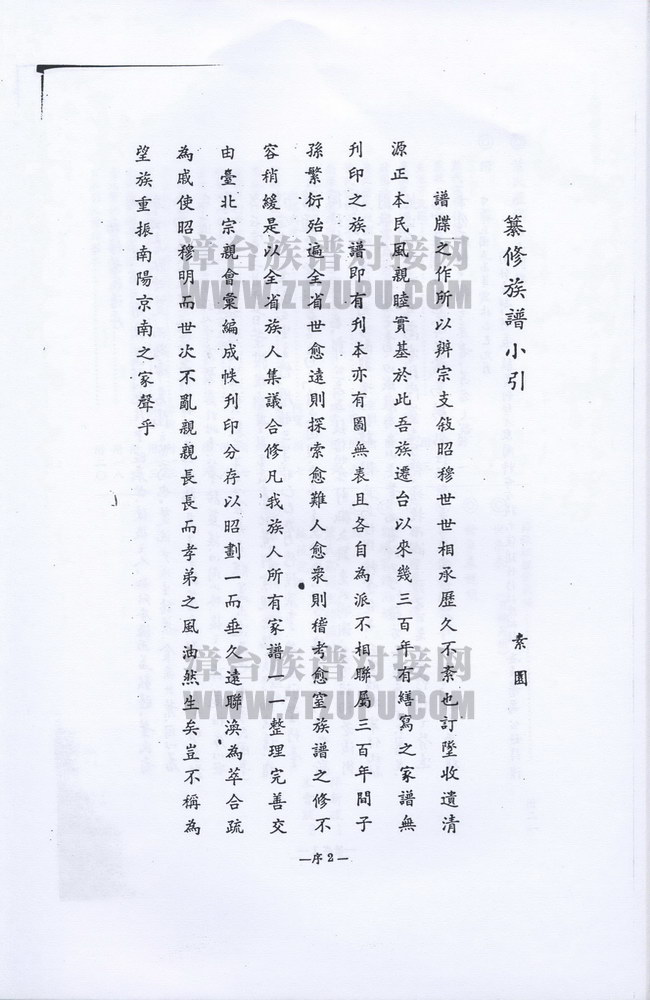 纂修族譜小引
素園
譜牒之作所以辨宗支敍昭穆世世相承歷久不紊也訂墜收遺清
源正本民風親睦實基於此吾族遷台以來幾三百年有繕寫之家譜無
刋印之族譜即有刋本亦有圖無表且各自為派不相聯屬三百年間子
孫繁衍殆遍全省世愈遠則探索愈難人愈衆則稽考愈窒族譜之修不
容稍緩是以全省族人集議合修凡我族人所有家譜一一整理完善交
由臺北宗親會彙編成帙刋印分存以昭劃一而垂久遠聯渙為萃合疏
為戚使昭穆明而世次不亂親親長長而孝弟之風油然生矣豈不稱為
望族重振南陽京南之家聲乎
—序2—
漳台族谱对接网
WWW.ZTZUPU.COM
漳台族谱对接网
WWW.ZTZUPU.COM